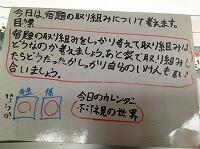 今日は、宿題の取り組みについて考えます。
目標
宿題の取り組みをしっかり考えて取り組みは
どうなのか考えましょう。あと家で取り組み
したらどうだったかしっかり自分のいけんも言い
合いましょう。
先生 係
今日のカレンダー
不思議の世界